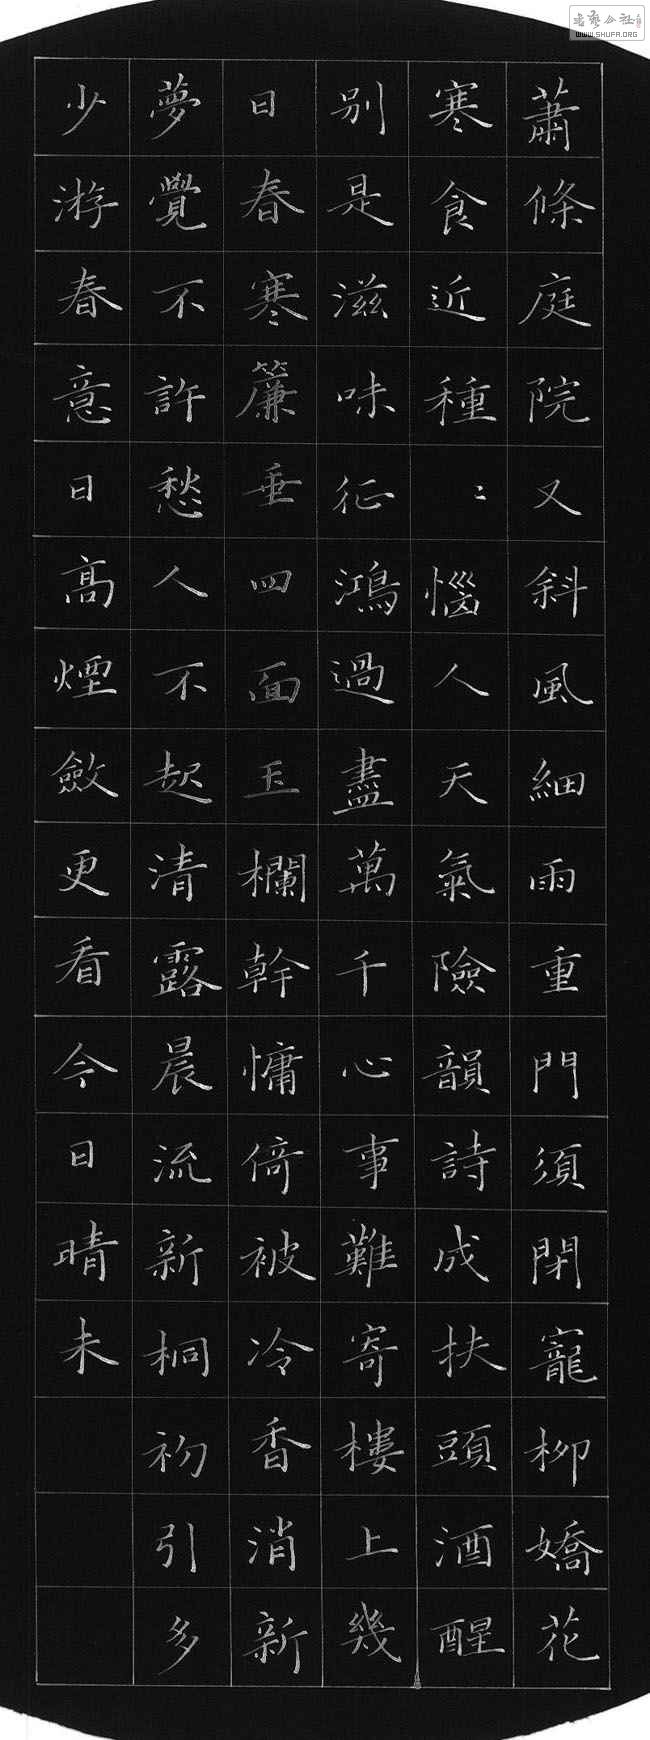 蕭條庭院又斜風細雨重門須閉寵柳嬌花
寒食近種〻惱人天氣險韻詩成扶頭酒醒
別是滋味征鴻過盡萬千心事難寄樓上幾
日春寒簾垂四面玉欄幹慵倚被冷香消新
夢覺不許愁人不起清露晨流新桐初引多
少游春意日高煙斂更看今日晴未
WWW.SHUFA.ORG